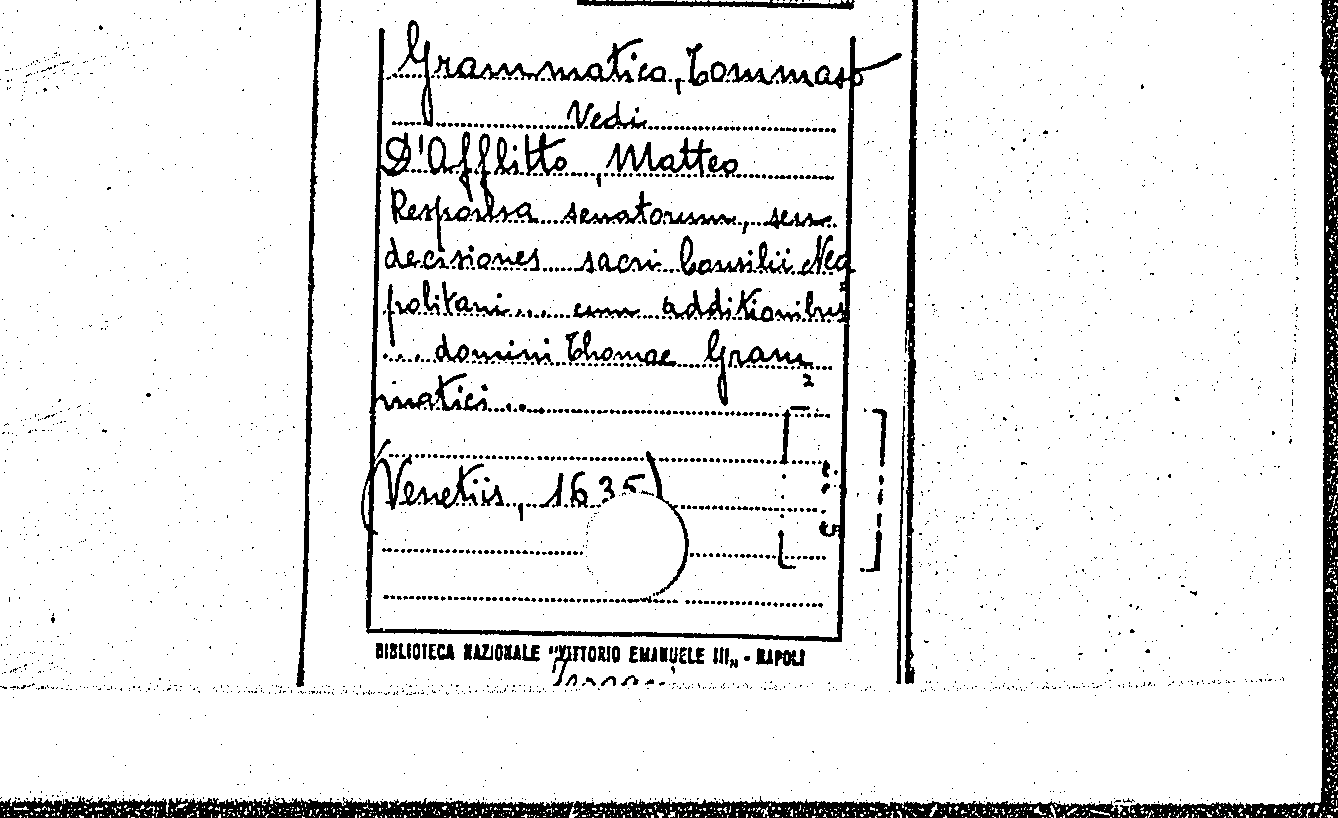 Grammatico, Tommaso
Vedi
D'Afflitto, Matteo
Responsa senatorum, seu
decisiones sacri Consilii Nea
politani... cum additionibus
... domini Thomae Gram
matici...
(Venetiis, 1635)
BIBLIOTECA NAZIONALE "VITTORIO EMANUELE III„ - NAPOLI